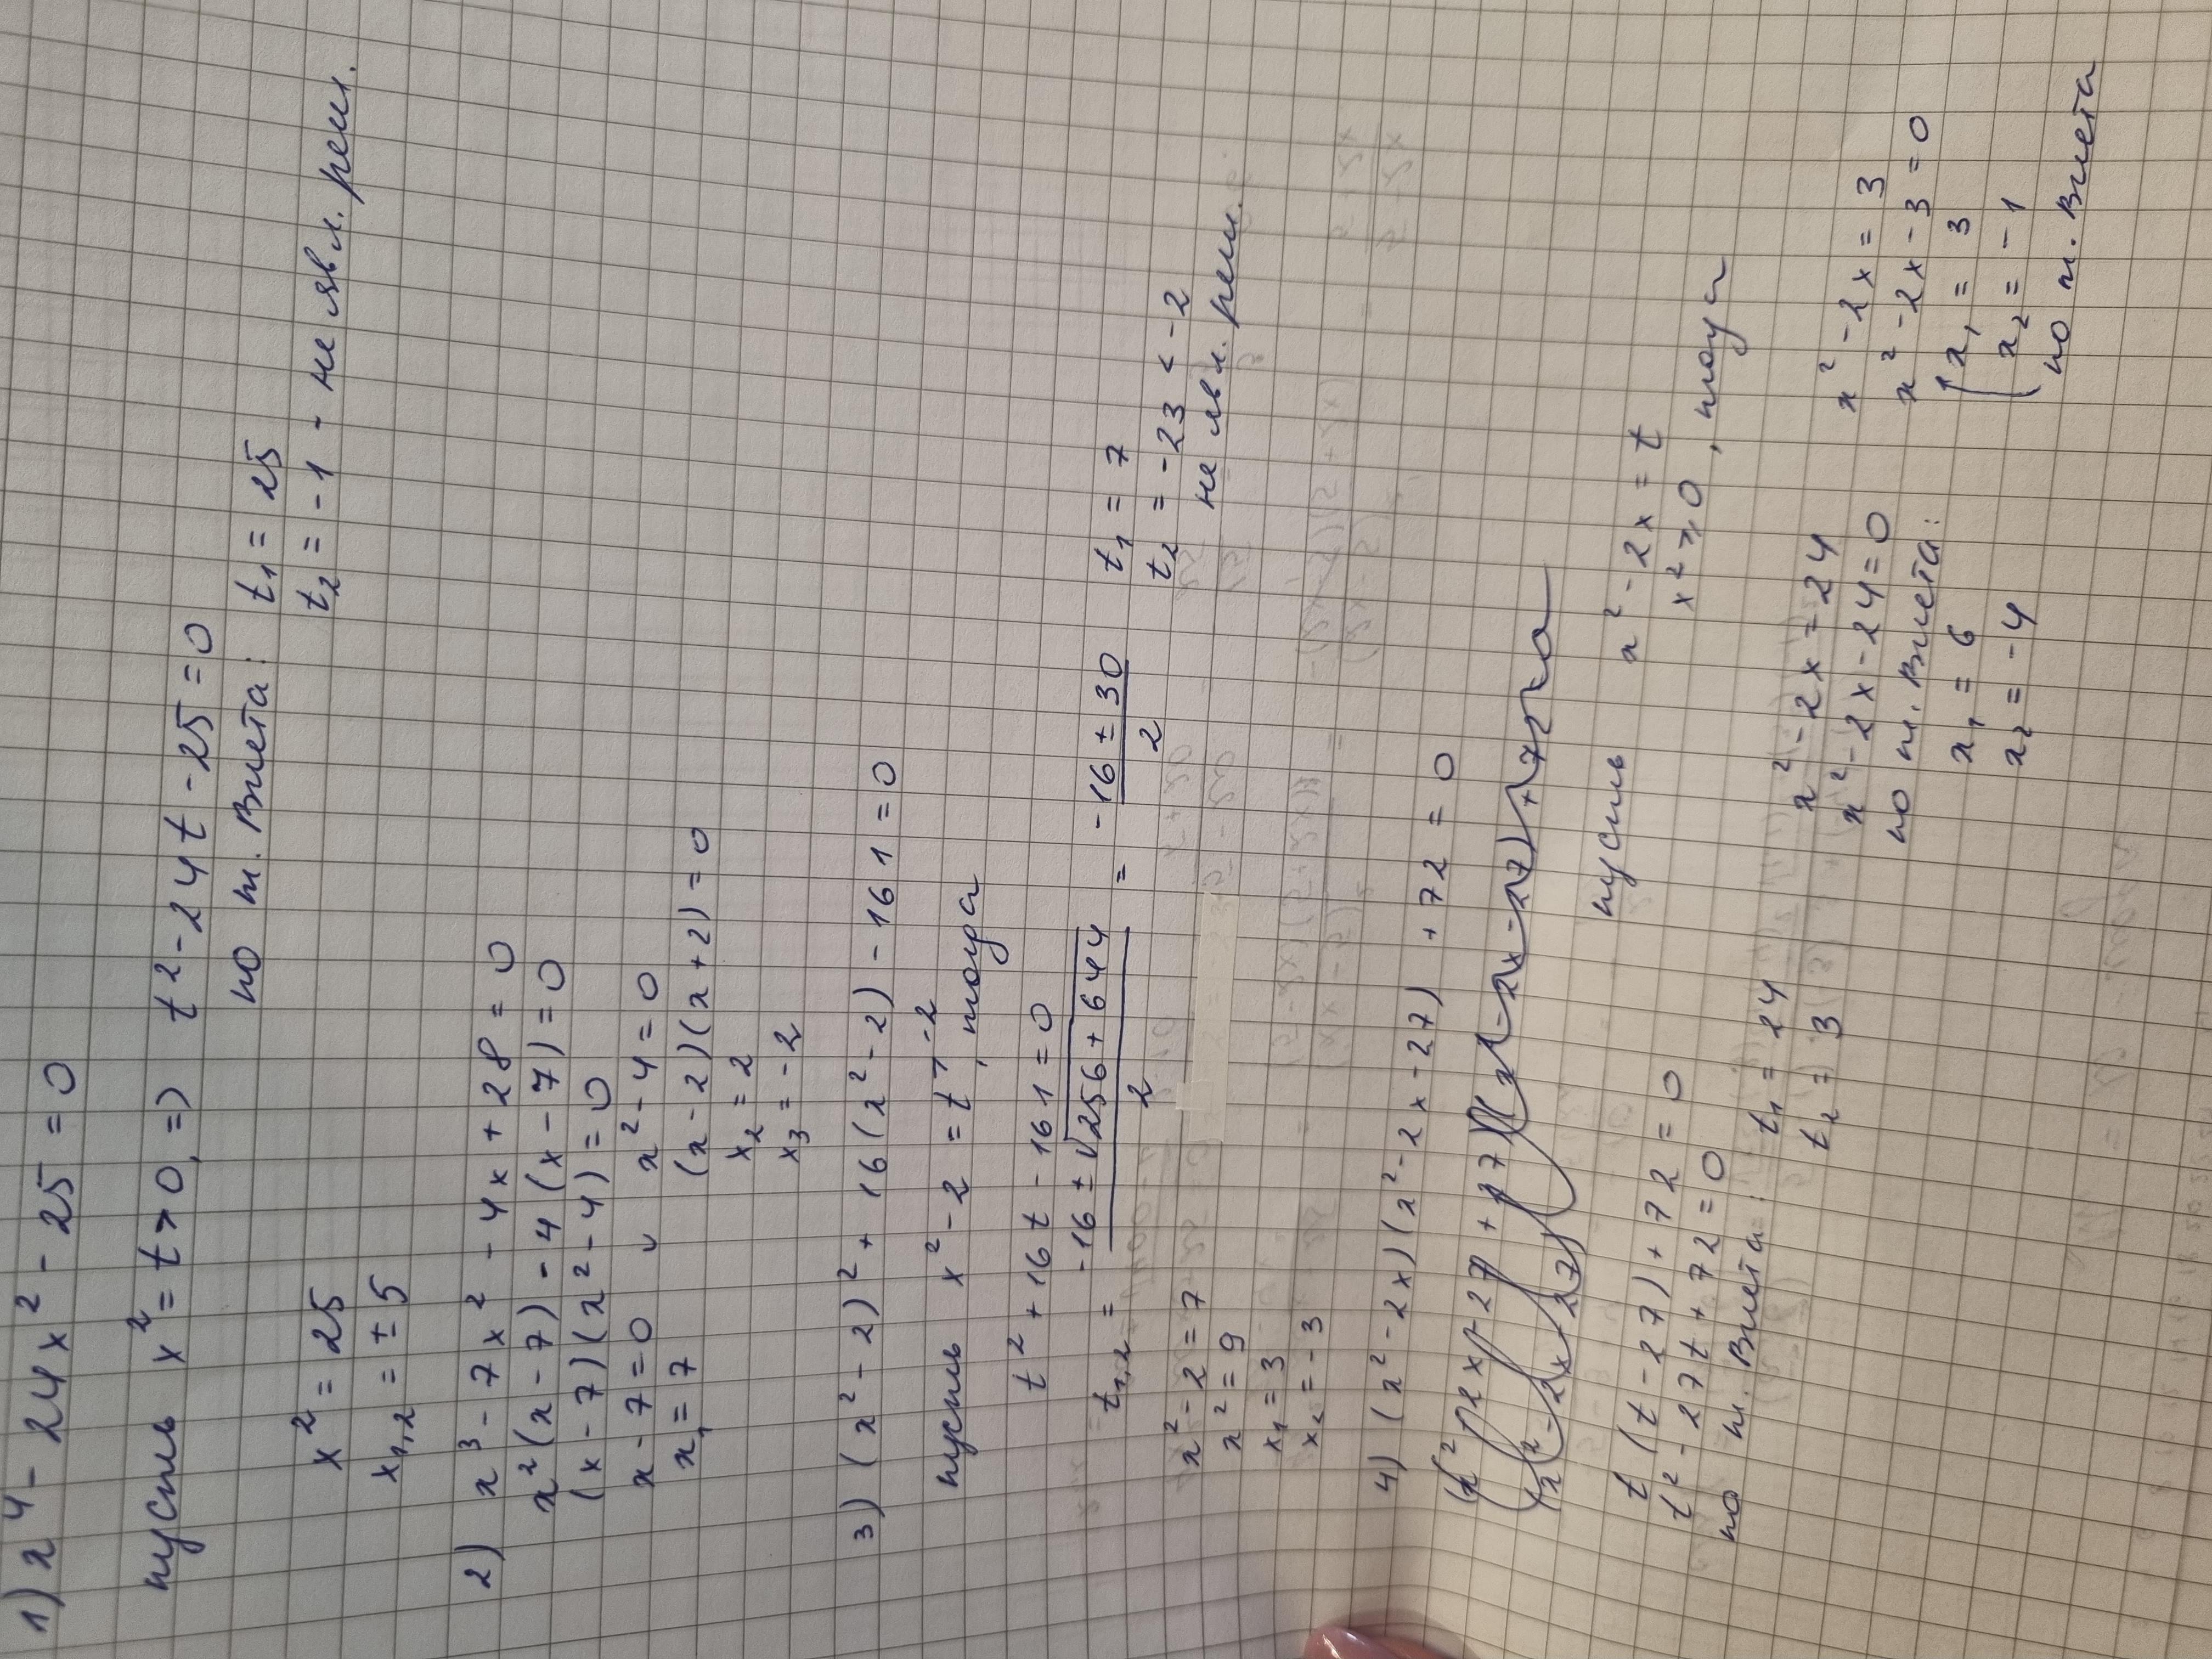 1) x⁴ - 24x² - 25 = 0
пусть x² = t > 0, =) t² - 24t - 25 = 0
по т. Виета: t₁ = 25
t₂ = -1 - не явл. реш.
x² = 25
x₁,₂ = ± 5
2) x³ - 7x² - 4x + 28 = 0
x²(x - 7) - 4(x - 7) = 0
(x - 7)(x² - 4) = 0
x - 7 = 0 ∨ x² - 4 = 0
x₁ = 7 (x - 2)(x + 2) = 0
x₂ = 2
x₃ = -2
3) (x² - 2)² + 16(x² - 2) - 161 = 0
пусть x² - 2 = t > -2, тогда
t² + 16t - 161 = 0
t₁,₂ = (-16 ± √256 + 644)/2 = (-16 ± 30)/2 t₁ = 7
t₂ = -23 < -2
не явл. реш.
x² - 2 = 7
x² = 9
x₁ = 3
x₂ = -3
4) (x² - 2x)(x² - 2x - 27) + 72 = 0
пусть x² - 2x = t
x² ⩾ 0, тогда
t(t - 27) + 72 = 0
t² - 27t + 72 = 0
по т. Виета: t₁ = 24
t₂ = 3
x² - 2x = 24
x² - 2x - 24 = 0
по т. Виета:
x₁ = 6
x₂ = -4
x² - 2x = 3
x² - 2x - 3 = 0
[x₁ = 3
x₂ = -1
по т. Виета